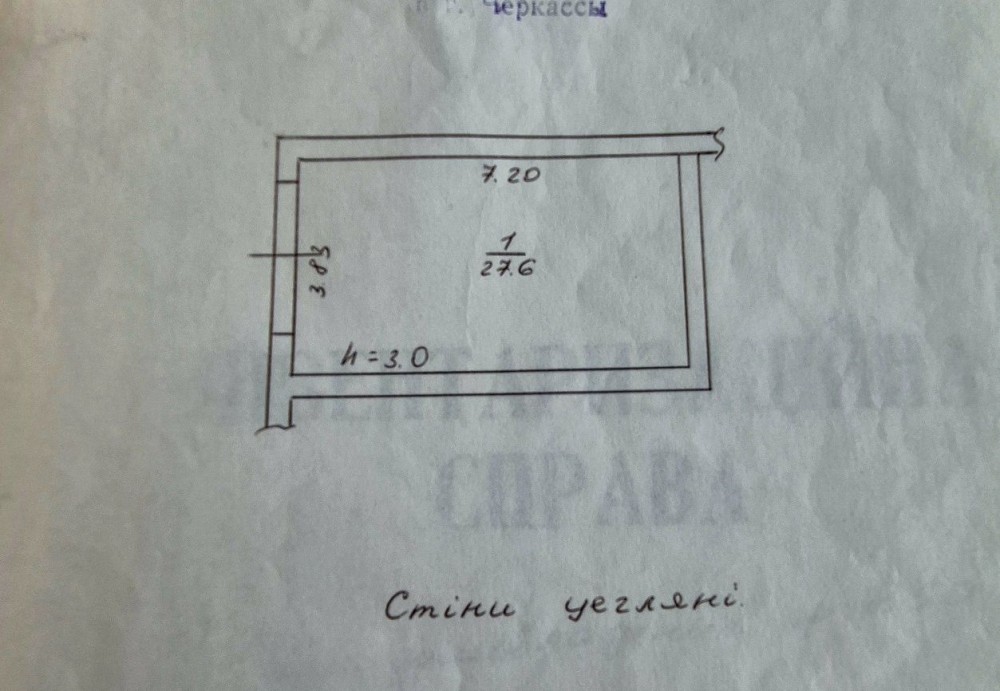 г. Черкассы
7.20
1
27.6
3.83
h = 3.0
ІНВЕНТАРИЗАЦІЙНА
СПРАВА
Стіни цегляні.